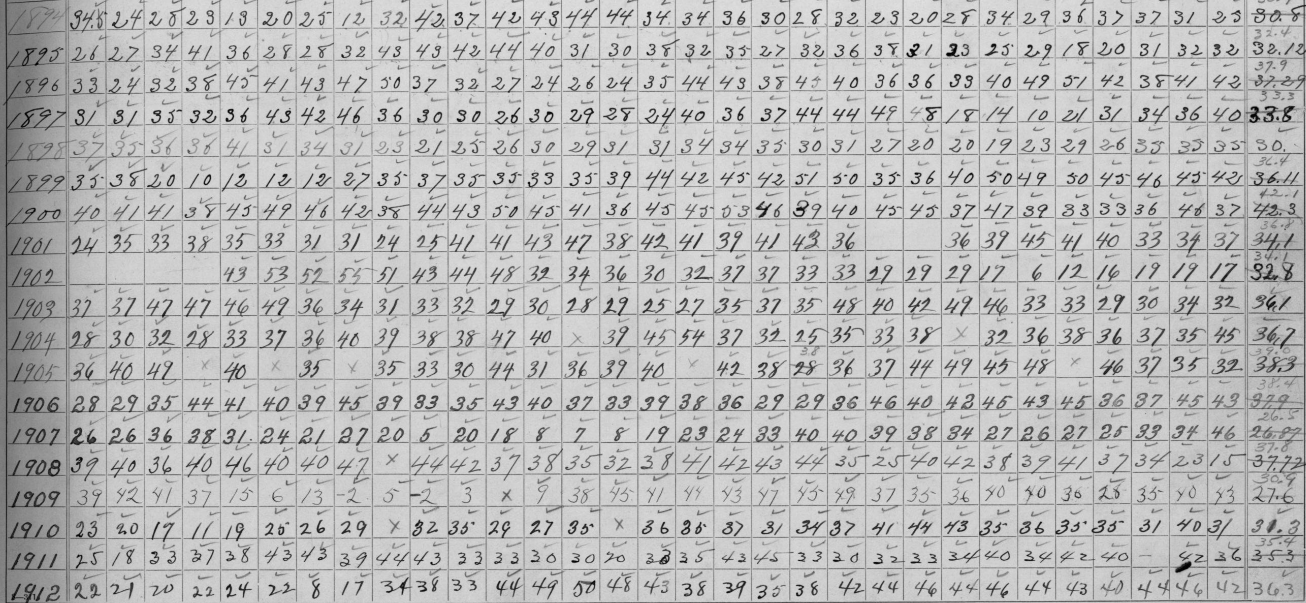 1894 34.5 24 28 23 13 20 25 12 32 42 37 42 43 44 44 34 34 36 30 28 32 23 20 28 34 29 36 37 37 31 23 30.8
32.4
1895 26 27 34 41 36 28 28 32 43 43 42 44 40 31 30 38 32 35 27 32 36 38 31 33 25 29 18 20 31 32 32 32.12
37.9
1896 33 24 32 38 45 41 43 47 50 37 32 27 24 26 24 35 44 43 38 45 40 36 36 33 40 49 51 42 38 41 42 37.29
33.3
1897 31 31 35 32 36 43 42 46 36 30 30 26 30 29 28 24 40 36 37 44 44 49 48 18 14 10 21 31 34 36 40 33.8
1898 37 35 36 36 41 31 34 31 23 21 25 26 30 29 31 31 34 34 35 30 31 27 20 20 19 23 29 26 35 35 35 30.
36.4
1899 35 38 20 10 12 12 12 27 35 37 35 35 33 35 39 44 42 45 42 51 50 35 36 40 50 49 50 45 46 45 42 36.11
42.1
1900 40 41 41 38 45 49 46 42 38 44 43 50 45 41 36 45 45 53 46 39 40 45 45 37 47 39 33 33 36 46 37 42.3
36.8
1901 24 35 33 38 35 33 31 31 24 25 41 41 43 47 38 42 41 39 41 43 36 36 39 45 41 40 33 34 37 34.1
34.1
1902 43 53 52 55 51 43 44 48 32 34 36 30 32 37 37 33 33 29 29 29 17 6 12 16 19 19 17 32.8
1903 37 37 47 47 46 49 36 34 31 33 32 29 30 28 29 25 27 35 37 35 48 40 42 49 46 33 33 29 30 34 32 36.1
1904 28 30 32 28 33 37 36 40 39 38 38 47 40 × 39 45 54 37 32 25 35 33 38 × 32 36 38 36 37 35 45 36.7
38 39.0
1905 36 40 49 × 40 × 35 × 35 33 30 44 31 36 39 40 × 42 38 28 36 37 44 49 45 48 × 46 37 35 32 38.3
38.4
1906 28 29 35 44 41 40 39 45 39 33 35 43 40 37 33 39 38 36 29 29 36 46 40 42 45 43 45 36 37 45 43 37.9
26.5
1907 26 26 36 38 31 24 21 27 20 5 20 18 8 7 8 19 23 24 33 40 40 39 38 34 27 26 27 25 33 34 46 26.87
37.8
1908 39 40 36 40 46 40 40 47 × 44 42 37 38 35 32 38 41 42 43 44 35 25 40 42 38 39 41 37 34 23 15 37.72
30.9
1909 39 42 41 37 15 6 13 -2 5 -2 3 × 9 38 45 41 44 43 47 45 49 37 35 36 40 40 30 28 35 40 43 27.6
1910 23 20 17 11 19 25 26 29 × 32 35 29 27 35 × 36 35 37 31 34 37 41 44 43 35 36 35 35 31 40 31 31.3
35.4
1911 25 18 33 37 38 43 43 39 44 43 33 33 30 30 20 33 35 43 45 33 30 32 33 34 40 34 42 40 - 42 36 35.3
1912 22 21 20 22 24 22 8 17 34 38 33 44 49 50 48 43 38 39 35 38 42 44 46 44 46 44 43 40 44 46 42 36.3